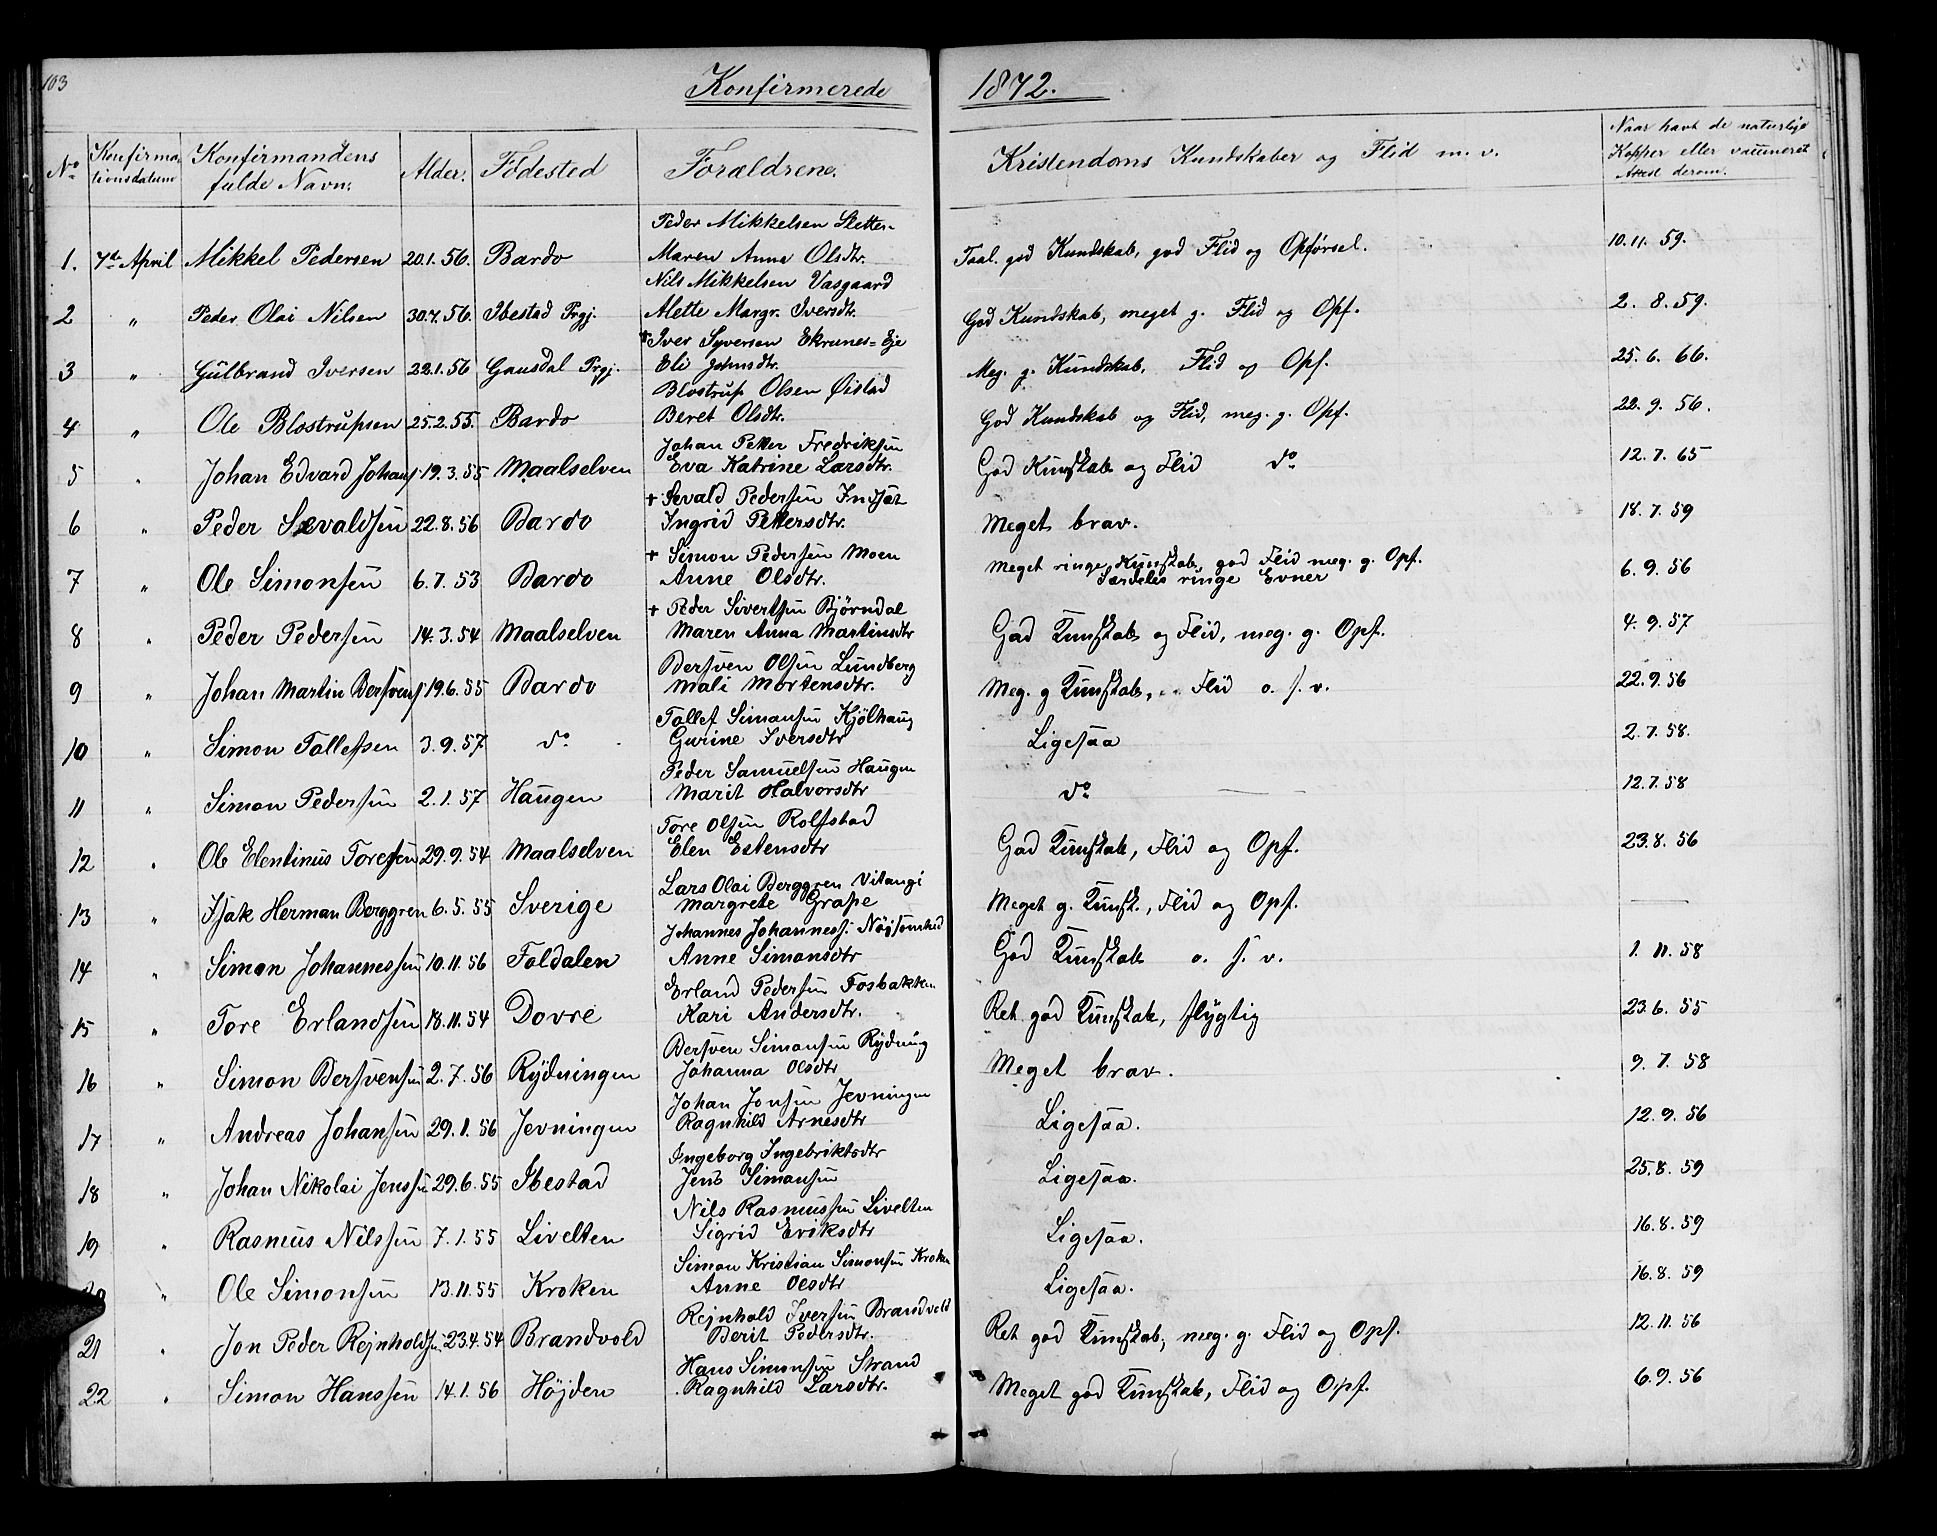 103
Konfirmerede 1872.
No Konfirmationsdatum Konfirmandens fulde Navn. Alder. Födested Forældrene. Kristendoms Kundskaber og Flid m. v. Naar havt de naturlige Kopper eller vaccineret Attest derom.
Peder Mikkelsen Sletten-
1. 7de April Mikkel Pedersen 20.1.56. Bardo Maren Anna Olsdtr. Taal. god Kundskab, god Flid og Opförsel. 10.11.59.
Nils Mikkelsen Vasgaard
2 " Peder Olai Nilsen 30.7.56. Ibestad Prgj. Alette Margr. Iversdtr. God Kundskab, meget g. Flid og Opf. 2.8.59.
+ Iver Syversen Ekrunes=Eje
3 " Gülbrand Iversen 22.1.56 Gausdal Prgj. Eli Johnsdtr. Meg. g. Kundskab, Flid og Opf. 25.6.66.
Blostrup Olsen Øistad
4 " Ole Blostrupsen 25.2.55. Bardo Beret Olsdtr. God Kundskab og Flid, meg. g. Opf. 22.9.56.
Johan Petter Fredriksen
5 " Johan Edvard Johans 19.3.55 Maalselven Eva Katrine Larsdtr. God Kunskab og Flid do 12.7.65
+ Sevald Pedersen Indset
6 " Peder Sevaldsen 22.8.56 Bardo Ingrid Pettersdtr. Meget brav. 18.7.59
+ Simon Pedersen Moen
7 " Ole Simonsen 6.7.53 Bardo Anne Olsdtr. Meget ringe Kunskab, god Flid meg. g. Opf. Særdeles ringe Evner 6.9.56
+ Peder Sivertsen Bjørndal
8 " Peder Pedersen 14.3.54 Maalselven Maren Anna Martinsdtr God Kunskab og Flid, meg. g. Opf. 4.9.57
Bersven Olsen Lundberg
9 " Johan Martin Bersvens 19.6.55 Bardo Mali Mortensdtr. Meg. g Kunskab, Flid o. s. v. 22.9.56
Tollef Simonsen Kjölhaug
10 " Simon Tollefsen 3.9.57 do Gurine Iversdtr Ligesaa 2.7.58.
Peder Samuelsen Haugen
11 " Simon Pedersen 2.1.57 Haugen Marit Halvorsdtr do 12.7.58
Tore Olsen Rolfstad
12 " Ole Elentinus Toresen 29.9.54 Maalselven Elen Estensdtr God Kunskab, Flid og Opf. 23.8.56
Lars Olai Berggren Vitangi
13 " Isak Herman Berggren 6.5.55 Sverige Margrete Grape Meget g. Kunsk., Flid og Opf. —
Johannes Johanness. Nøjsomhed
14 " Simon Johannessen 10.11.56 Foldalen Anne Simonsdtr God Kunskab o. s. v. 1.11.58
Erland Pedersen Fosbakken
15 " Tore Erlandsen 18.11.54 Dovre Kari Andersdtr. Ret god Kunskab, flygtig 23.6.55
Bersven Simonsen Rydning
16 " Simon Bersvensen 2.7.56 Rydningen Johanna Olsdtr Meget brav. 9.7.58
Johan Jonsen Jevningen
17 " Andreas Johansen 29.1.56 Jevningen Ragnhild Arnesdtr Ligesaa. 12.9.56
Ingeborg Ingebriktsdtr
18 " Johan Nikolai Jenssen 29.6.55 Ibestad Jens Simonsen Ligesaa. 25.8.59
Nils Rasmussen Livelten
19 " Rasmus Nilssen 7.1.55 Livelten Sigrid Eriksdtr Ligesaa. 16.8.59
Simon Kristian Simonsen Kroken
20 " Ole Simonsen 13.11.55 Kroken Anne Olsdtr Ligesaa. 16.8.59
Rejnhold Iversen Brandvold
21 " Jon Peder Rejnholds. 23.4.54 Brandvold Berit Pedersdtr. Ret god Kunskab, meg. g. Flid og Opf. 12.11.56
Hans Simonsen Strand
22 " Simon Hanssen 14.1.56 Höjden Ragnhild Larsdtr. Meget god Kunskab, Flid og Opf. 6.9.56